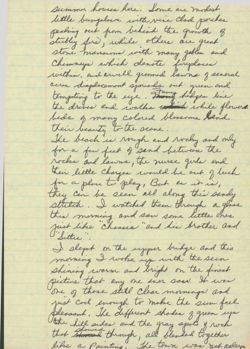 summer houses here. Some are modest
little bungalows with vine clad porches
peeking out from behind the growth of
stubby firs, while others are great
stone mansions with many gables and
chimneys which denote fireplaces
within, and and well groomed lawns of several
acres displacement spreads out green and
tempting to the eye. Hedges line
the drives and walks while flower
beds of many colored blossoms lend
their beauty to the scene.
The beach is rough and rocky and only
for a few feet of sand between the
rocks and lawns, the nurse girls and
their little charges would be out of luck
for a place to play. But as it is,
they can be seen all along this sandy
stretch. I watched them through a glass
this morning and saw some little ones
just like "Chassea" and his brother and
"Sittie".
I slept on the upper bridge and this
morning I woke up with the sun
shining warm and bright on the finest
picture that any one ever saw. It was
one of those still clear mornings and
just cool enough to make the sun feel
pleasant. The different shades of green up
the hill sides and the gray specks of rock
that through, all blended together
like a painting. The town was not astir